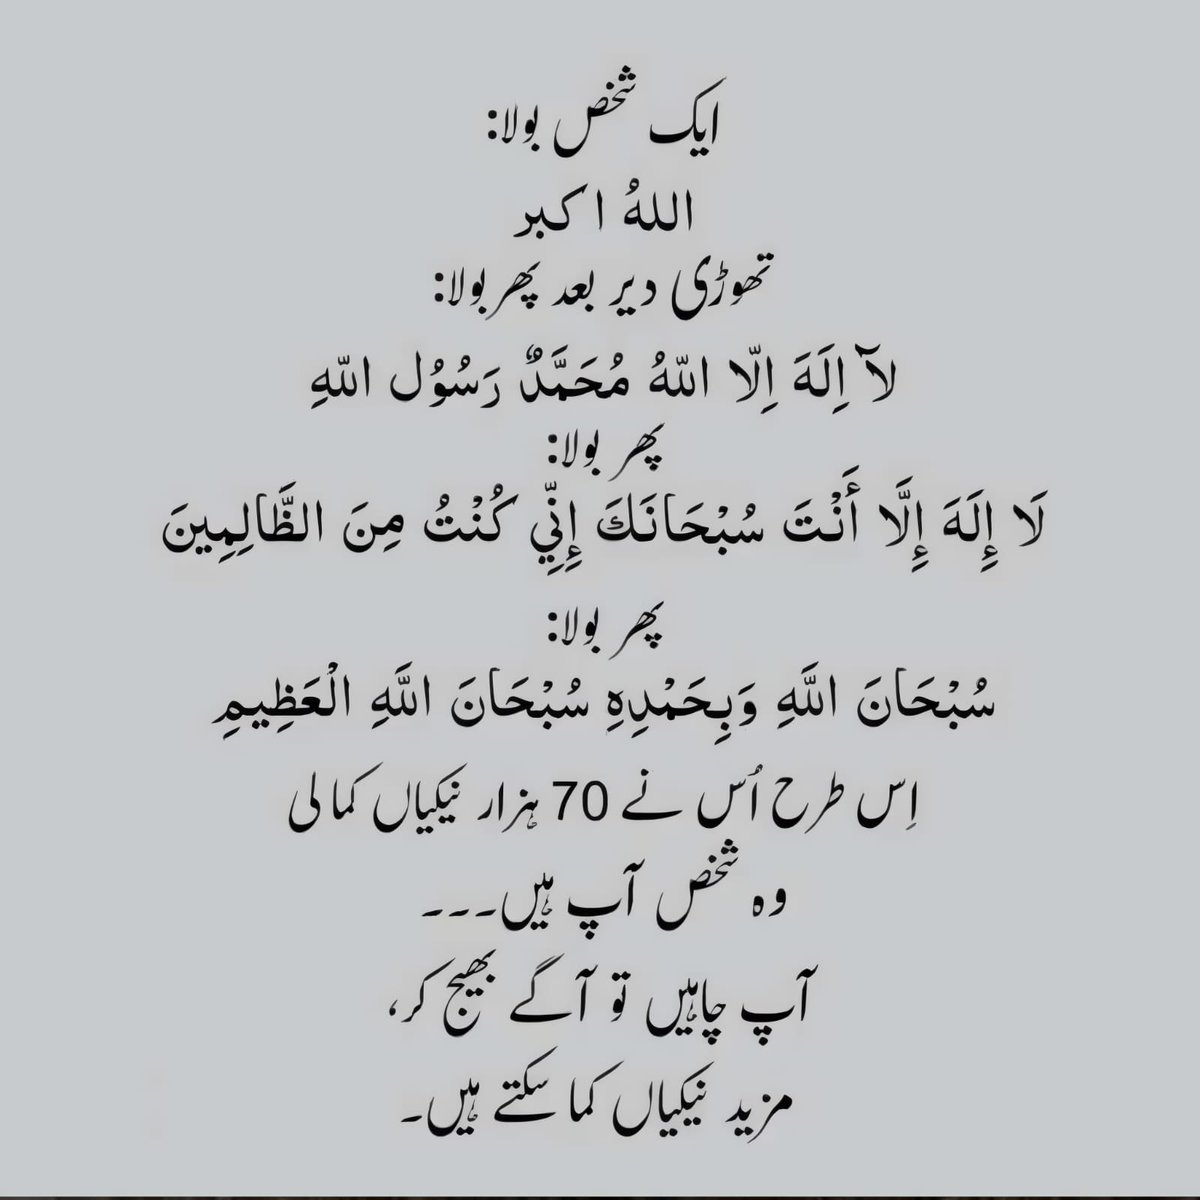 ایک شخص بولا:
اللہُ اکبر
تھوڑی دیر بعد پھر بولا:
لآ اِلَهَ اِلّا اللّهُ مُحَمَّدٌ رَسُوُل اللّهِ
پھر بولا:
لَا إِلَهَ إِلَّا أَنْتَ سُبْحَانَكَ إِنِّي كُنْتُ مِنَ الظَّالِمِينَ
پھر بولا:
سُبْحَانَ اللَّهِ وَبِحَمْدِهِ سُبْحَانَ اللَّهِ الْعَظِيمِ
اِس طرح اُس نے 70 ہزار نیکیاں کما لی
وہ شخص آپ ہیں۔۔۔
آپ چاہیں تو آگے بھیج کر،
مزید نیکیاں کما سکتے ہیں۔